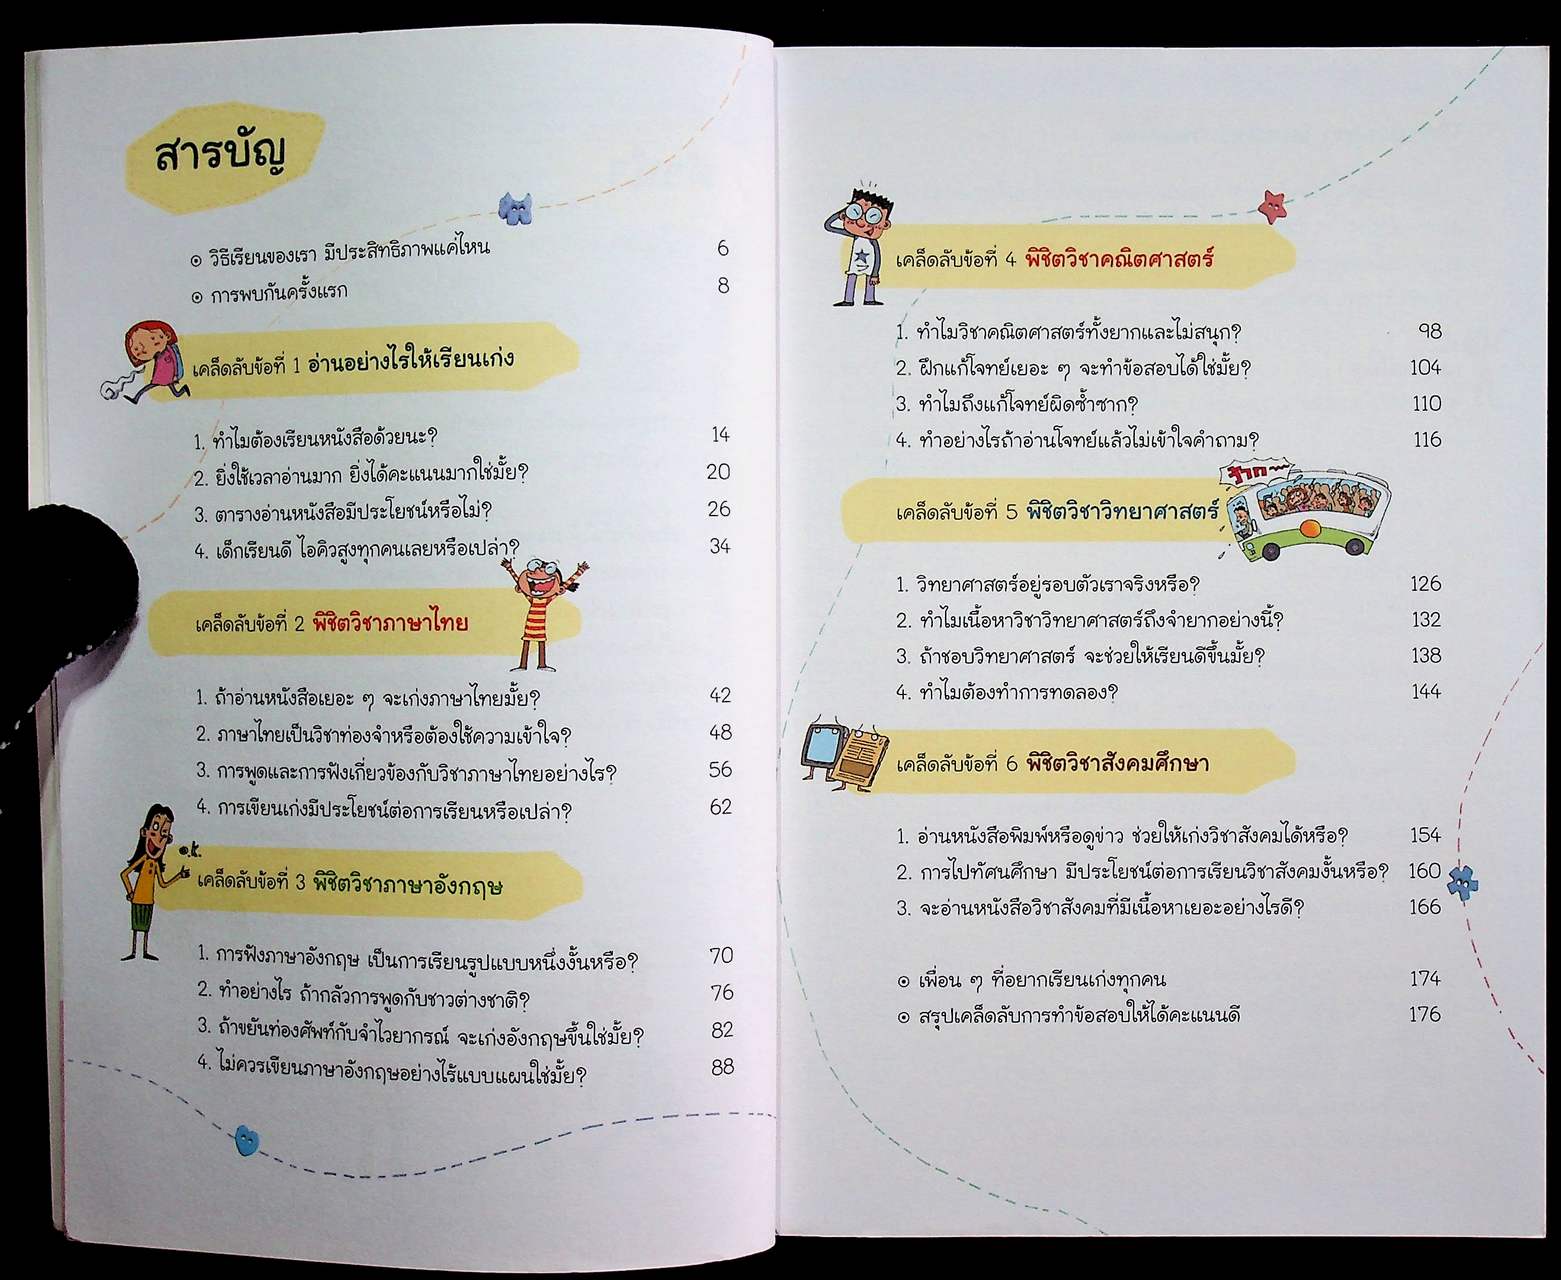 สารบัญ
⊙ วิธีเรียนของเรา มีประสิทธิภาพแค่ไหน 6
⊙ การพบกันครั้งแรก 8
เคล็ดลับข้อที่ 1 อ่านอย่างไรให้เรียนเก่ง
1. ทำไมต้องเรียนหนังสือด้วยนะ? 14
2. ยิ่งใช้เวลาอ่านมาก ยิ่งได้คะแนนมากใช่มั้ย? 20
3. ตารางอ่านหนังสือมีประโยชน์หรือไม่? 26
4. เด็กเรียนดี ไอคิวสูงทุกคนเลยหรือเปล่า? 34
เคล็ดลับข้อที่ 2 พิชิตวิชาภาษาไทย
1. ถ้าอ่านหนังสือเยอะ ๆ จะเก่งภาษาไทยมั้ย? 42
2. ภาษาไทยเป็นวิชาท่องจำหรือต้องใช้ความเข้าใจ? 48
3. การพูดและการฟังเกี่ยวข้องกับวิชาภาษาไทยอย่างไร? 56
4. การเขียนเก่งมีประโยชน์ต่อการเรียนหรือเปล่า? 62
อ.ค.
เคล็ดลับข้อที่ 3 พิชิตวิชาภาษาอังกฤษ
1. การฟังภาษาอังกฤษ เป็นการเรียนรูปแบบหนึ่งงั้นหรือ? 70
2. ทำอย่างไร ถ้ากลัวการพูดกับชาวต่างชาติ? 76
3. ถ้าขยันท่องศัพท์กับจำไวยากรณ์ จะเก่งอังกฤษขึ้นใช่มั้ย? 82
4. ไม่ควรเขียนภาษาอังกฤษอย่างไร้แบบแผนใช่มั้ย? 88
เคล็ดลับข้อที่ 4 พิชิตวิชาคณิตศาสตร์
1. ทำไมวิชาคณิตศาสตร์ทั้งยากและไม่สนุก? 98
2. ฝึกแก้โจทย์เยอะ ๆ จะทำข้อสอบได้ใช่มั้ย? 104
3. ทำไมถึงแก้โจทย์ผิดซ้ำซาก? 110
4. ทำอย่างไรถ้าอ่านโจทย์แล้วไม่เข้าใจคำถาม? 116
เคล็ดลับข้อที่ 5 พิชิตวิชาวิทยาศาสตร์
1. วิทยาศาสตร์อยู่รอบตัวเราจริงหรือ? 126
2. ทำไมเนื้อหาวิชาวิทยาศาสตร์ถึงจำยากอย่างนี้? 132
3. ถ้าชอบวิทยาศาสตร์ จะช่วยให้เรียนดีขึ้นมั้ย? 138
4. ทำไมต้องทำการทดลอง? 144
เคล็ดลับข้อที่ 6 พิชิตวิชาสังคมศึกษา
1. อ่านหนังสือพิมพ์หรือดูข่าว ช่วยให้เก่งวิชาสังคมได้หรือ? 154
2. การไปทัศนศึกษา มีประโยชน์ต่อการเรียนวิชาสังคมงั้นหรือ? 160
3. จะอ่านหนังสือวิชาสังคมที่มีเนื้อหาเยอะอย่างไรดี? 166
⊙ เพื่อน ๆ ที่อยากเรียนเก่งทุกคน 174
⊙ สรุปเคล็ดลับการทำข้อสอบให้ได้คะแนนดี 176